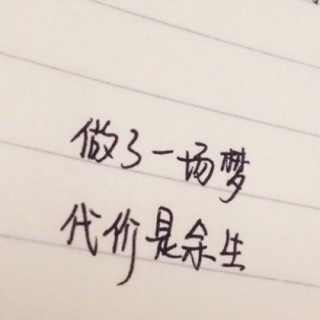 做了一场梦
代价是余生